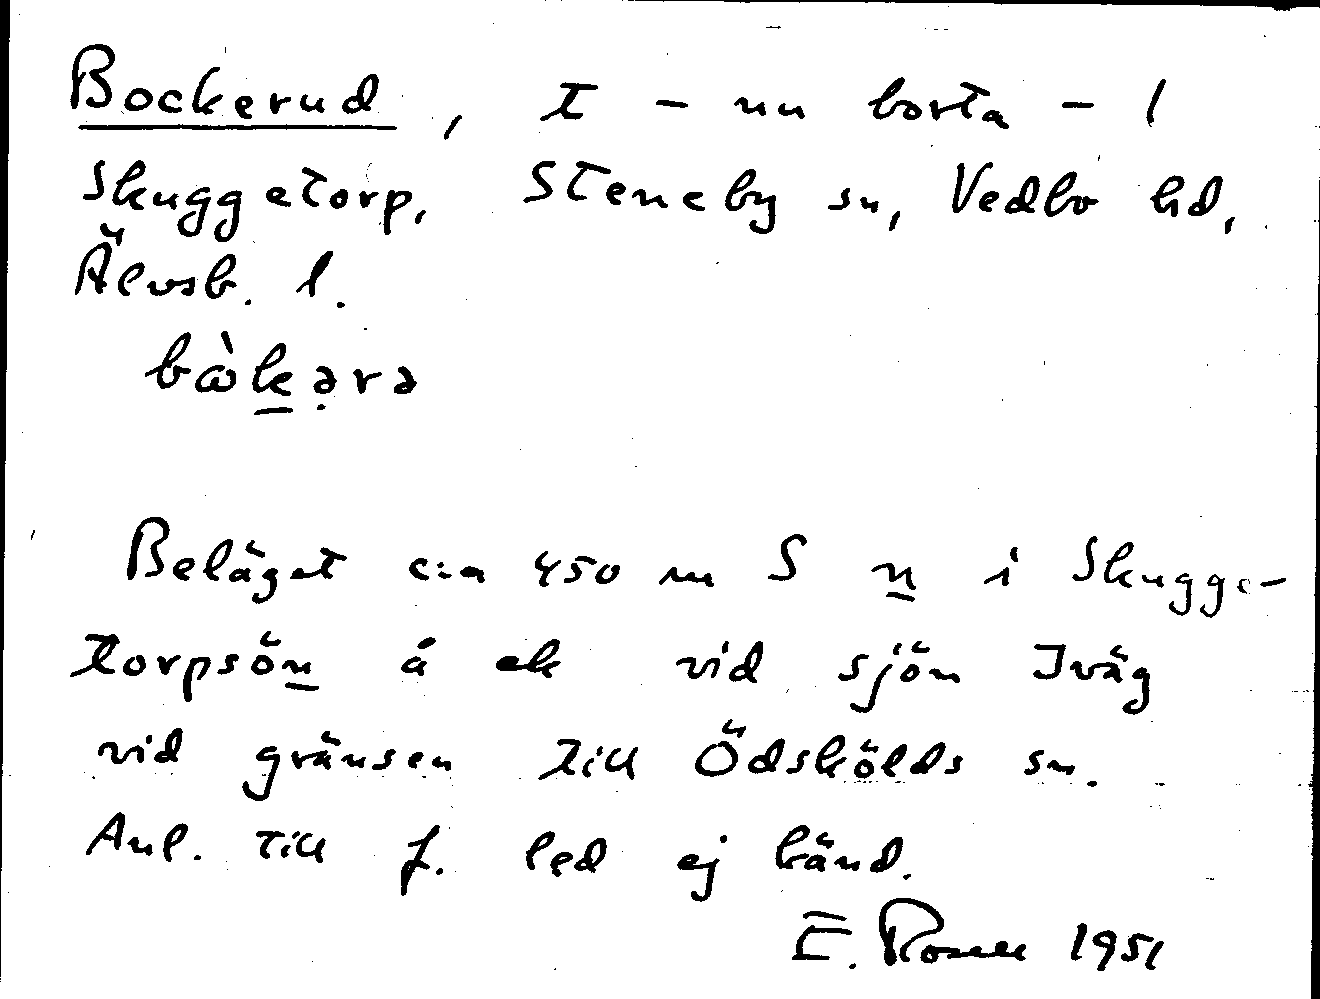 Bockerud, t - nu borta - 1
Skuggetorp, Steneby sn, Vedbo hd,
Älvsb. l.
bàkərə
Beläget c:a 450 m S n i Skugge-
torpsön å ek vid sjön Iväg
vid gränsen till Ödskölds sn.
Anl. till f. led ej känd.
E. Rosell 1951